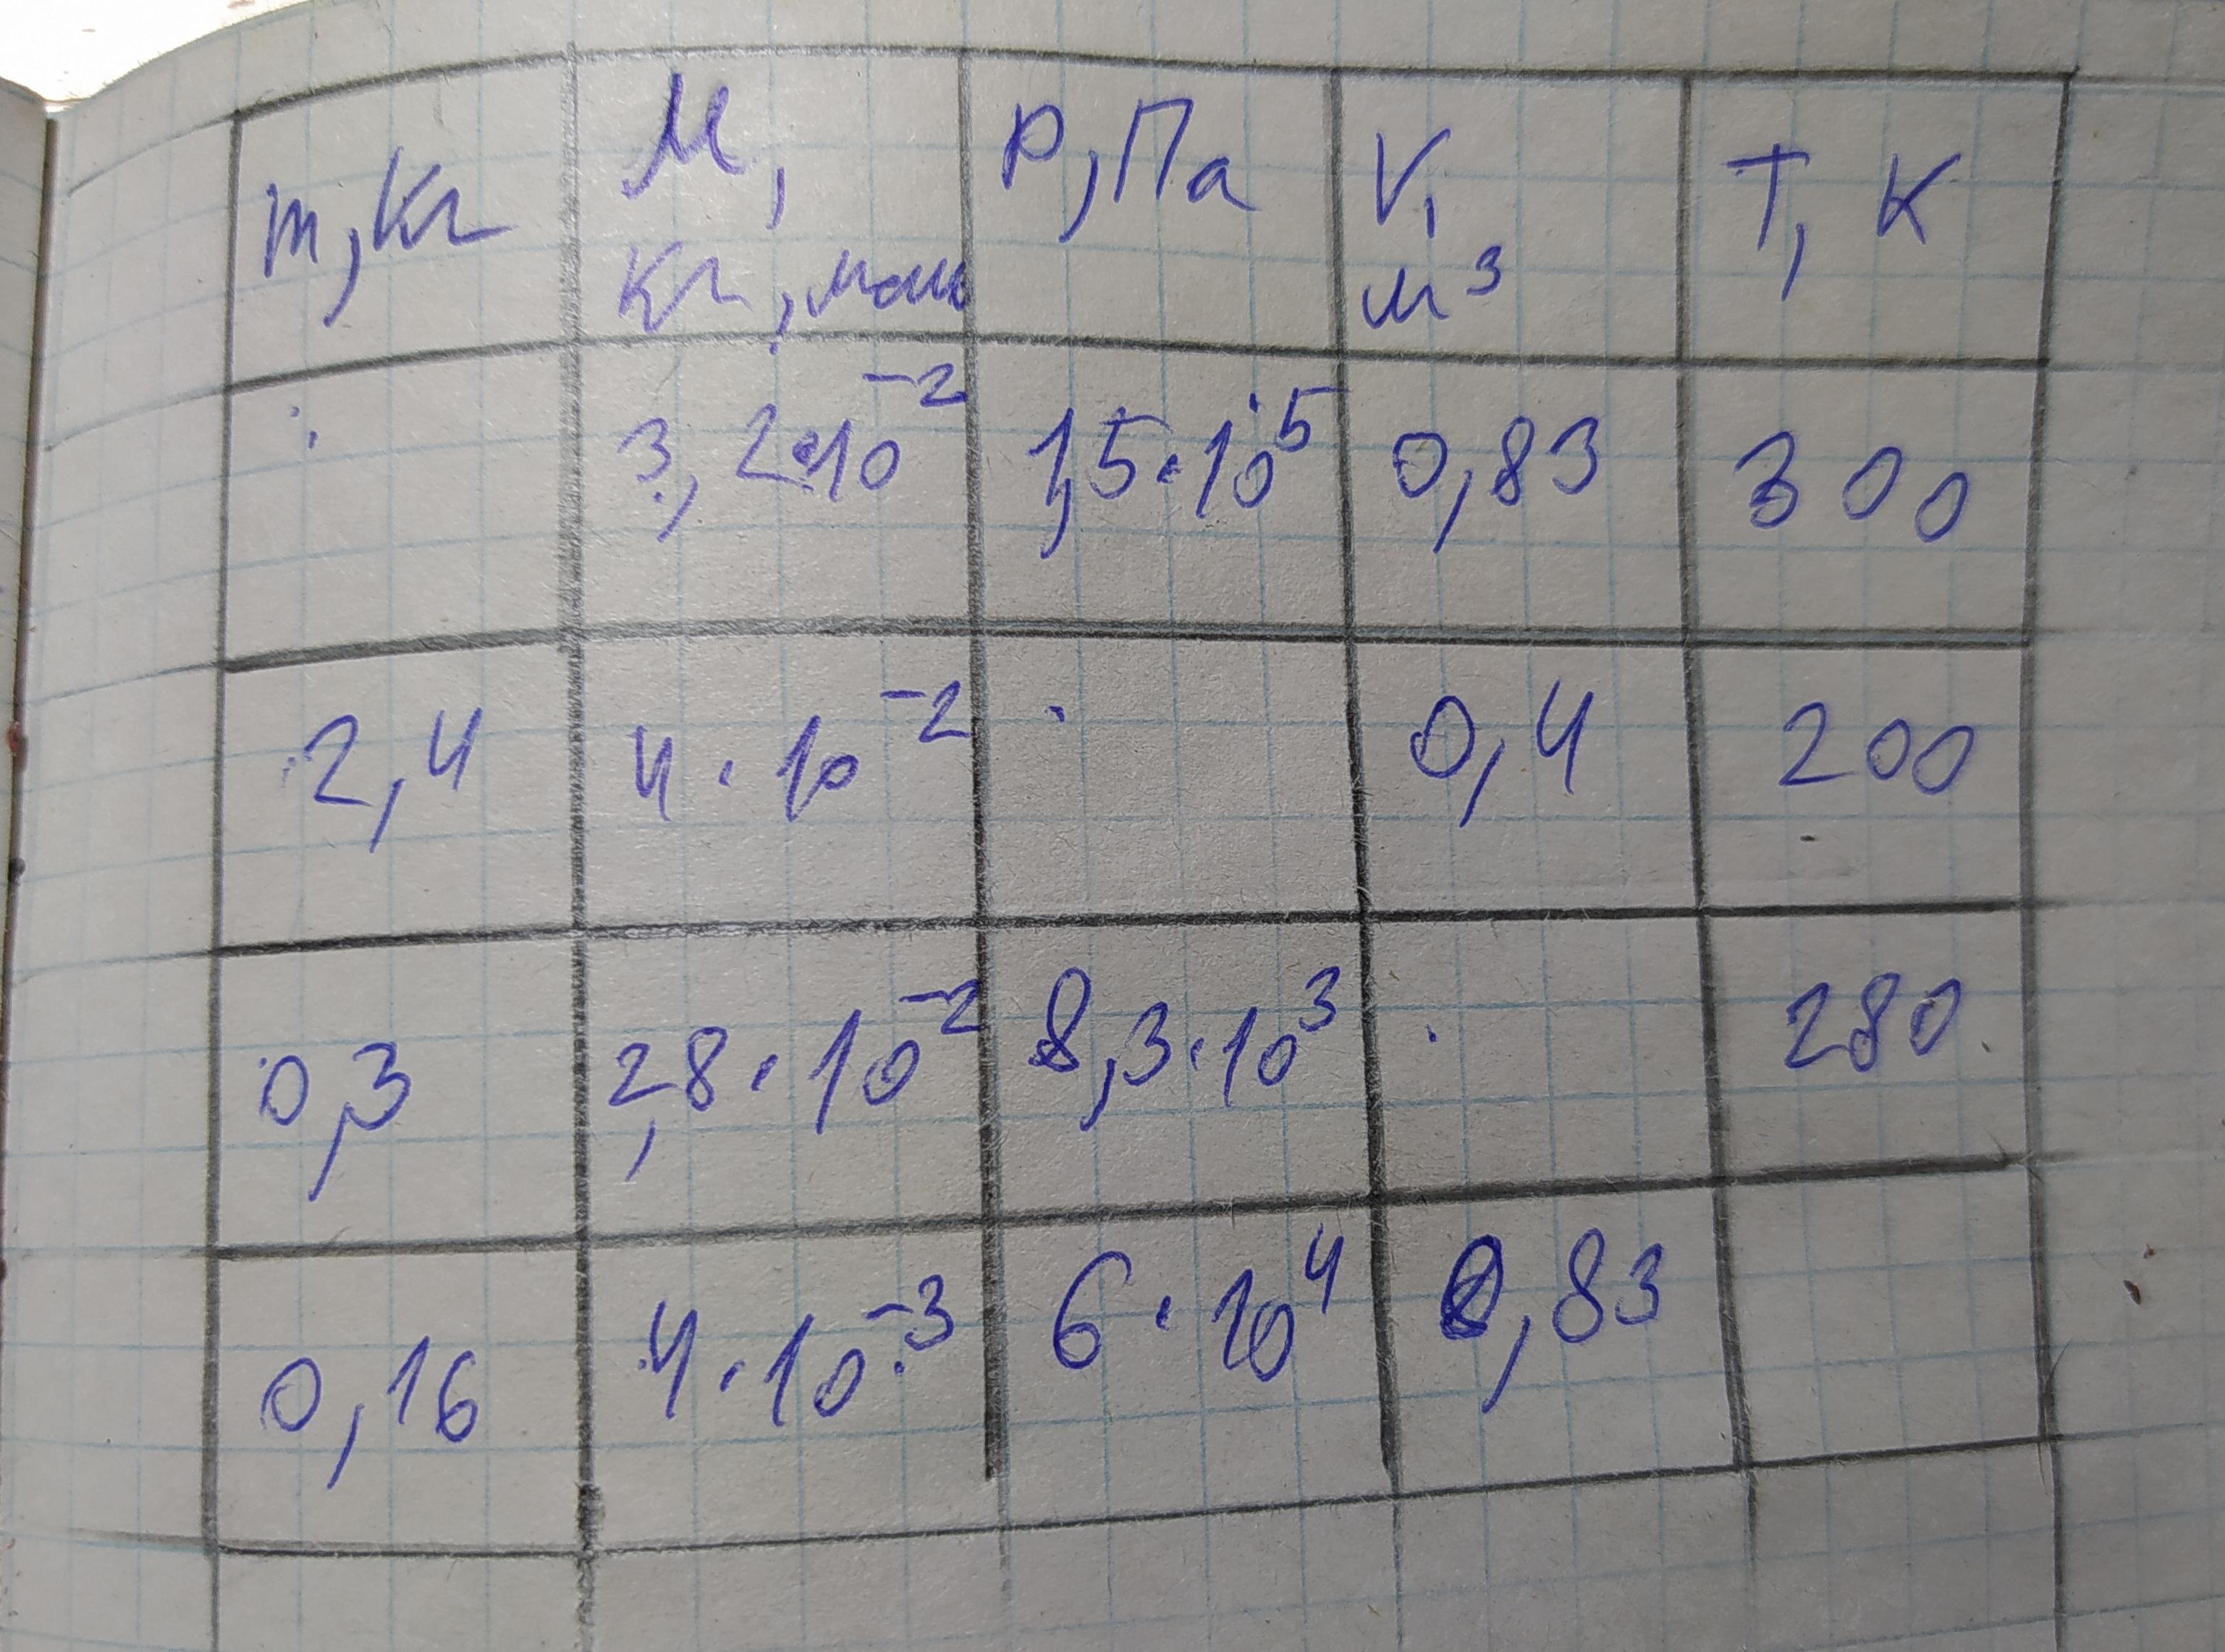 m, Кг М, Кг, моль P, Па V, м³ T, К
3,2·10⁻² 1,5·10⁵ 0,83 300
2,4 4·10⁻² 0,4 200
0,3 2,8·10⁻² 8,3·10³ 280
0,16 4·10⁻³ 6·10⁴ 0,83